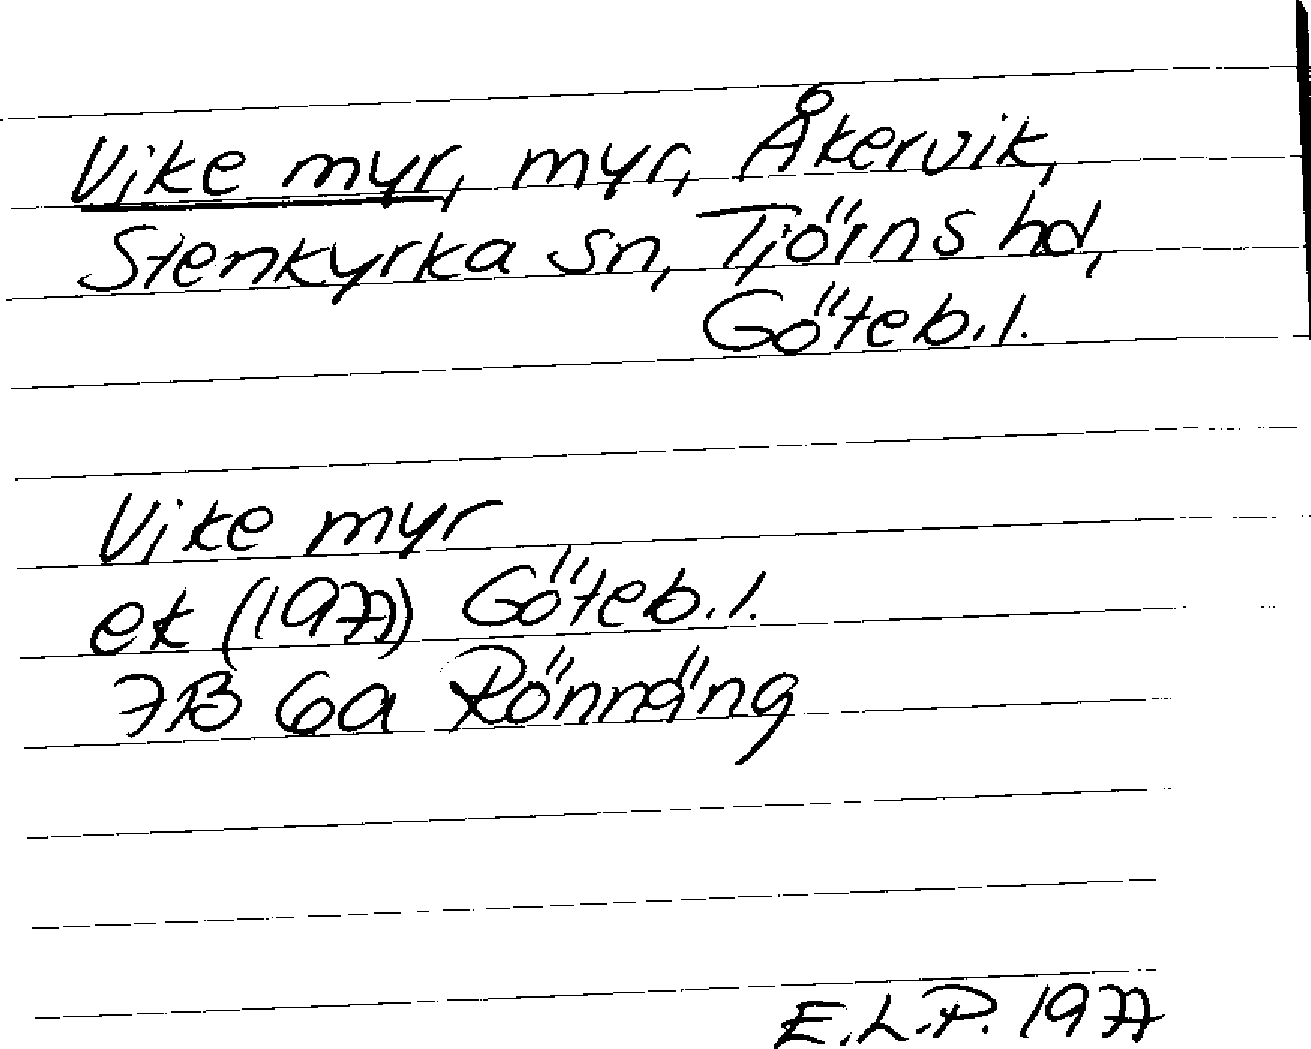 Vike myr, myr, Åkervik,
Stenkyrka sn, Tjörns hd,
Göteb.l.
Vike myr
ek (1977) Göteb.l.
7B 6a Rönnäng
E.L.P. 1977